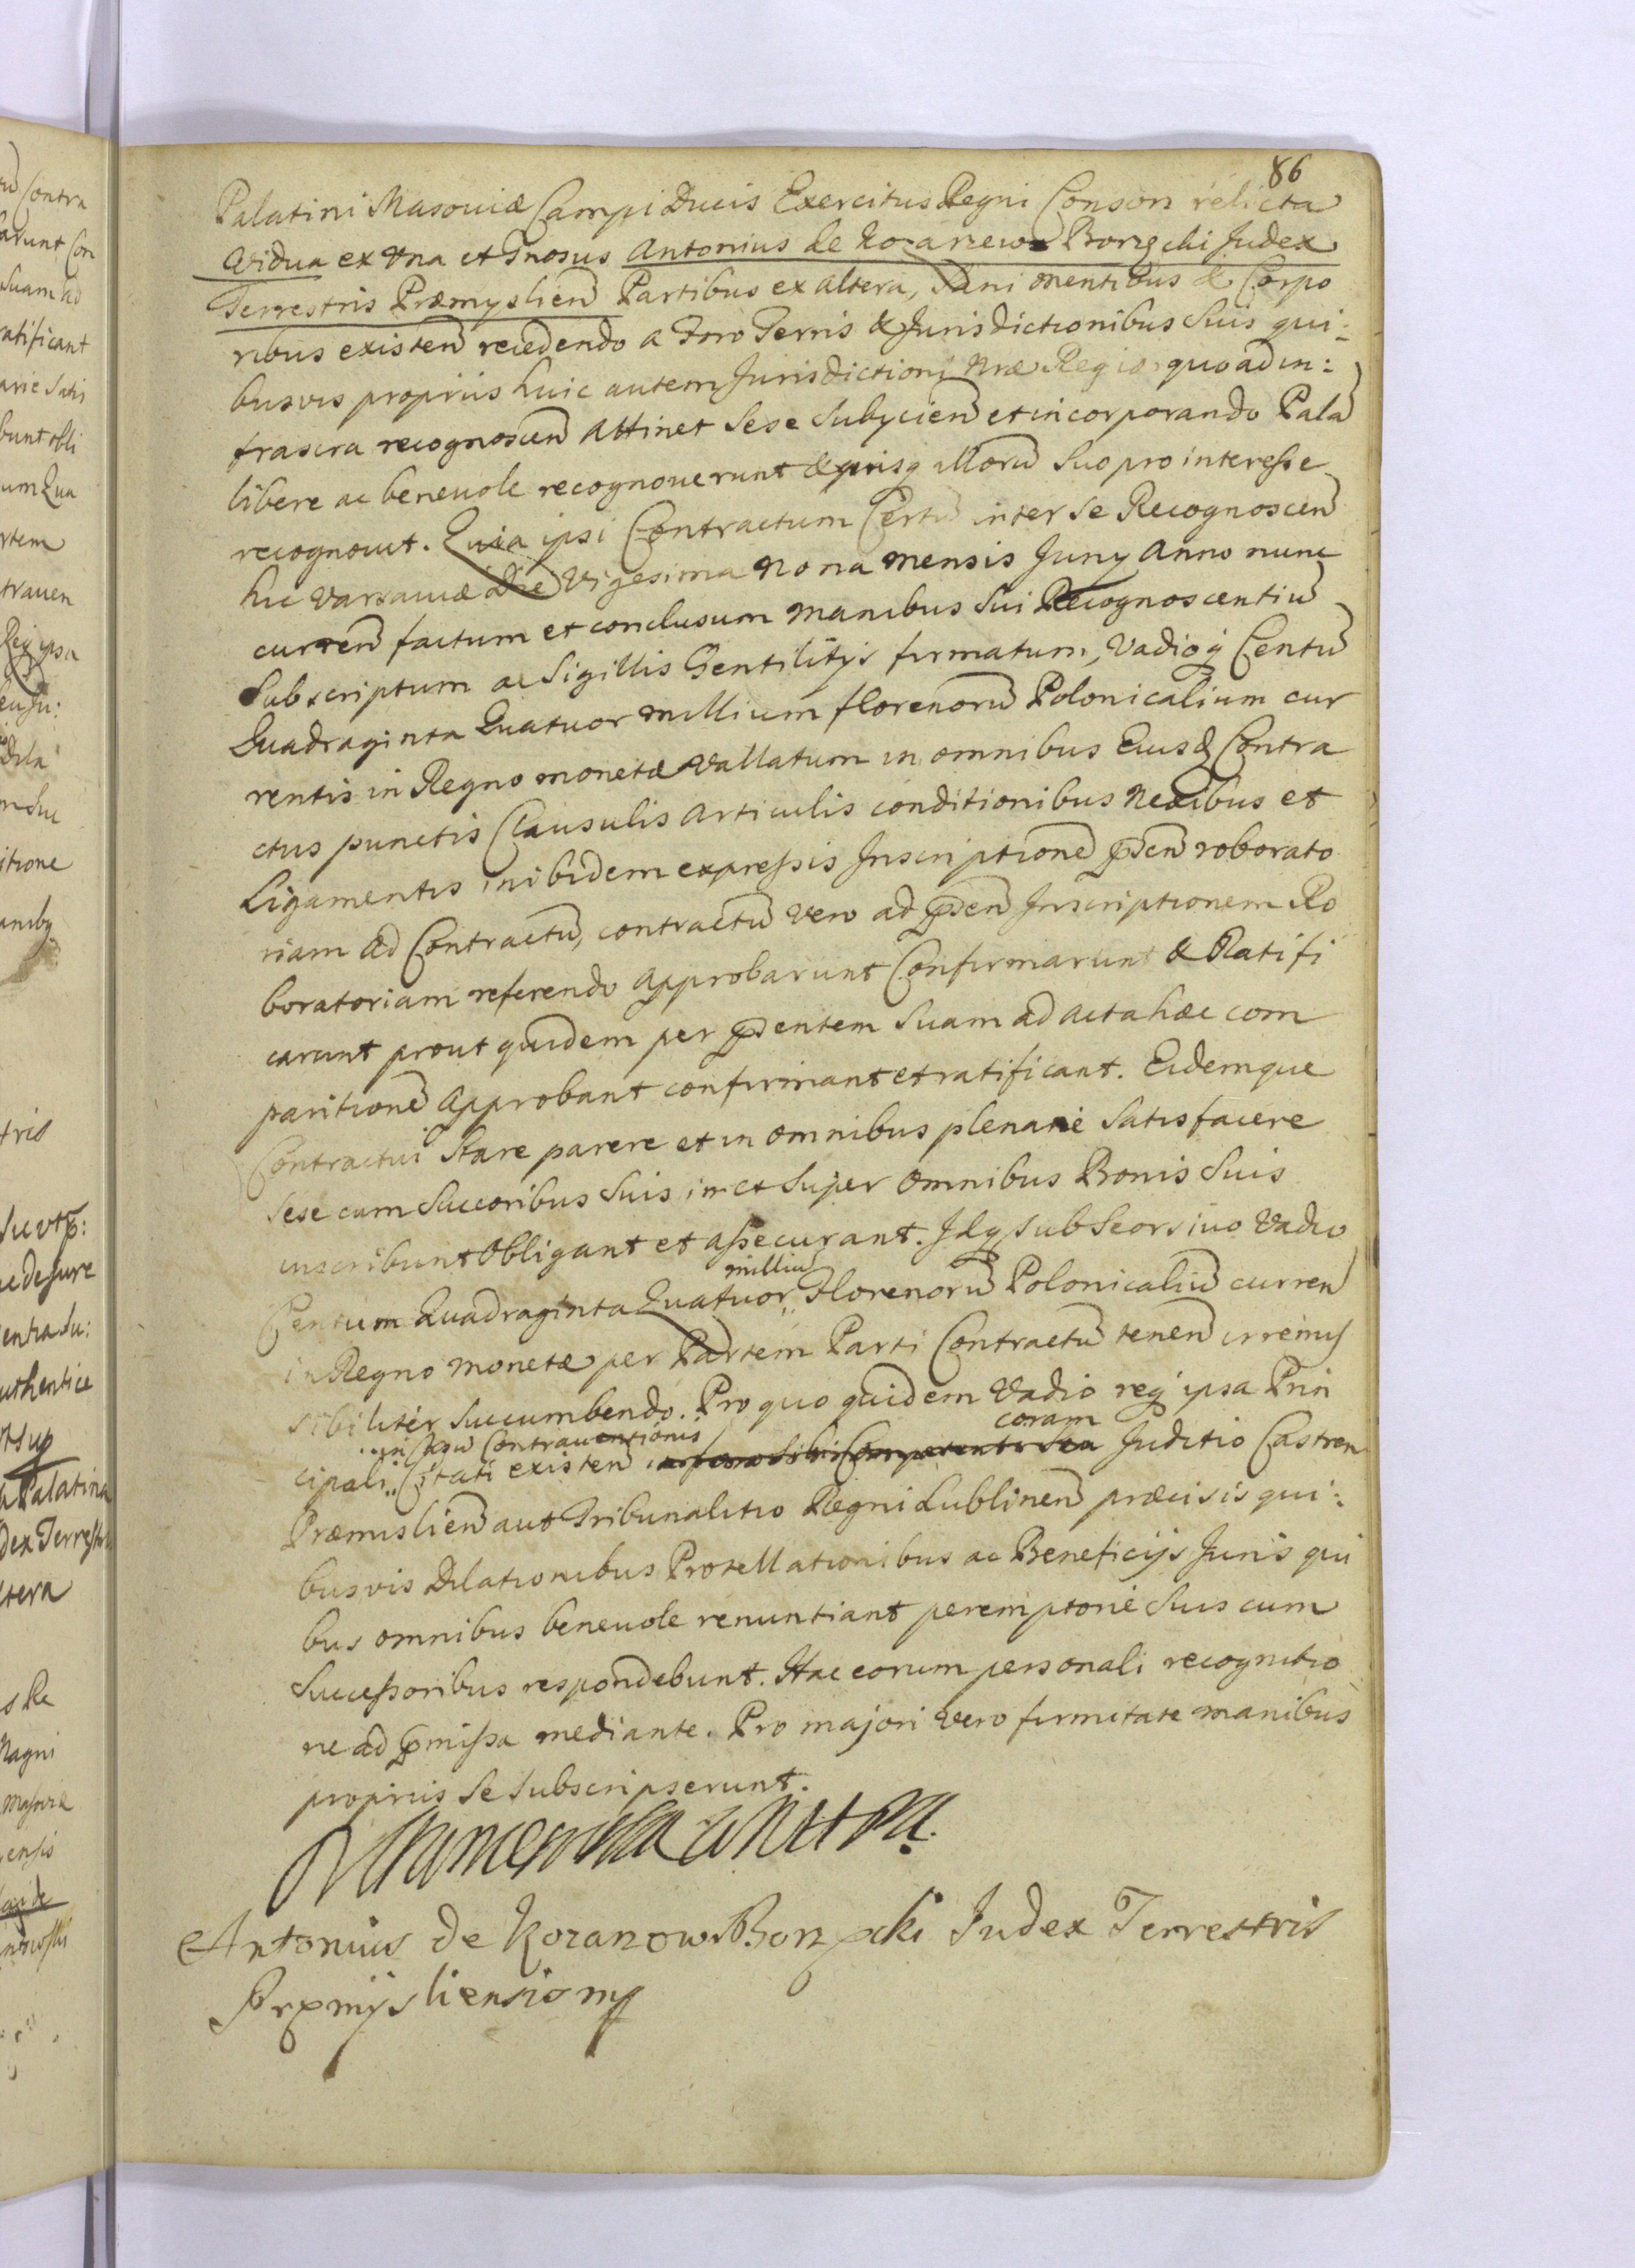 86
Palatini Masoviæ Campi Ducis Exercitus Regni Consors relicta
Vidua ex Una et Gnosus Antonius de Kozanew Borzęcki Judex
Terrestris Præmyslien Partibus ex altera, Sani mentibus & Corpo
ribus existen recedendo a Foro Terris & Jurisdictionibus Suis qui:
busvis proprüs huic autem Jurisdictioni Nræ Regiæ quoad in:
frascra recognoscen Attinet Sese Subycien et incorporando Pala
libere ac beneuole recognouerunt & quisq illoru Suo pro interesse
recognouit. Quia ipsi Contractum Certu inter se Recognoscen
hic Varsauiæ Die Vigesima Nona Mensis Juny Anno nunc
curren factum et conclusum Manibus Sui Recognoscentiu
Subscriptum ac Sigillis Gentilitys firmatum, Vadioq Centu
Quadraginta Quatuor millium florenoru Polonicalium cur
rentis in Regno monetæ vallatum in omnibus Eiusd Contra
ctus punctis Clausulis Articulis conditionibus Nexibus et
Ligamentis inibidem expressis Inscriptione psen roborato
riam ad Contractu, contractu vero ad psen Inscriptionem Ro
boratoriam referendo Approbarunt Confirmarunt & Ratifi
carunt prout quidem per psentem Suam ad acta hæc com
paritione Approbant confirmant et ratificant. Eidemque
Contractui Stare parere et in omnibus plenarie Satisfacere
Sese cum Succoribus Suis in et Super Omnibus Bonis Suis
inscribunt Obligant et assecurant. Idq sub Seorsiuo Vadio
Centum Quadraginta Quatuor milliu Florenoru Polonicaliu curren
in Regno Monetæ per Partem Parti Contractu tenen irremis
sibiliter Succumbendo. Pro quo quidem Vadio req ipsa Prin
cipali in casu Contrauentionis Citati existen in foro sibi Competenti Sea coram Juditio Castren
Præmislien aut Tribunalitio Regni Lublinen præcisis qui:
busvis Dilationibus Protellationibus ac Beneficijs Juris qui
bus omnibus beneuole renuntiant peremptorie Suis cum
Successoribus respondebunt. Hac eorum personali recognitio
ne ad pmissa mediante. Pro majori vero firmitate manibus
proprüs Se Subscripserunt.
Antonius de Kozanow Borzęcki Judex Terrestris
Præmysliensis mp